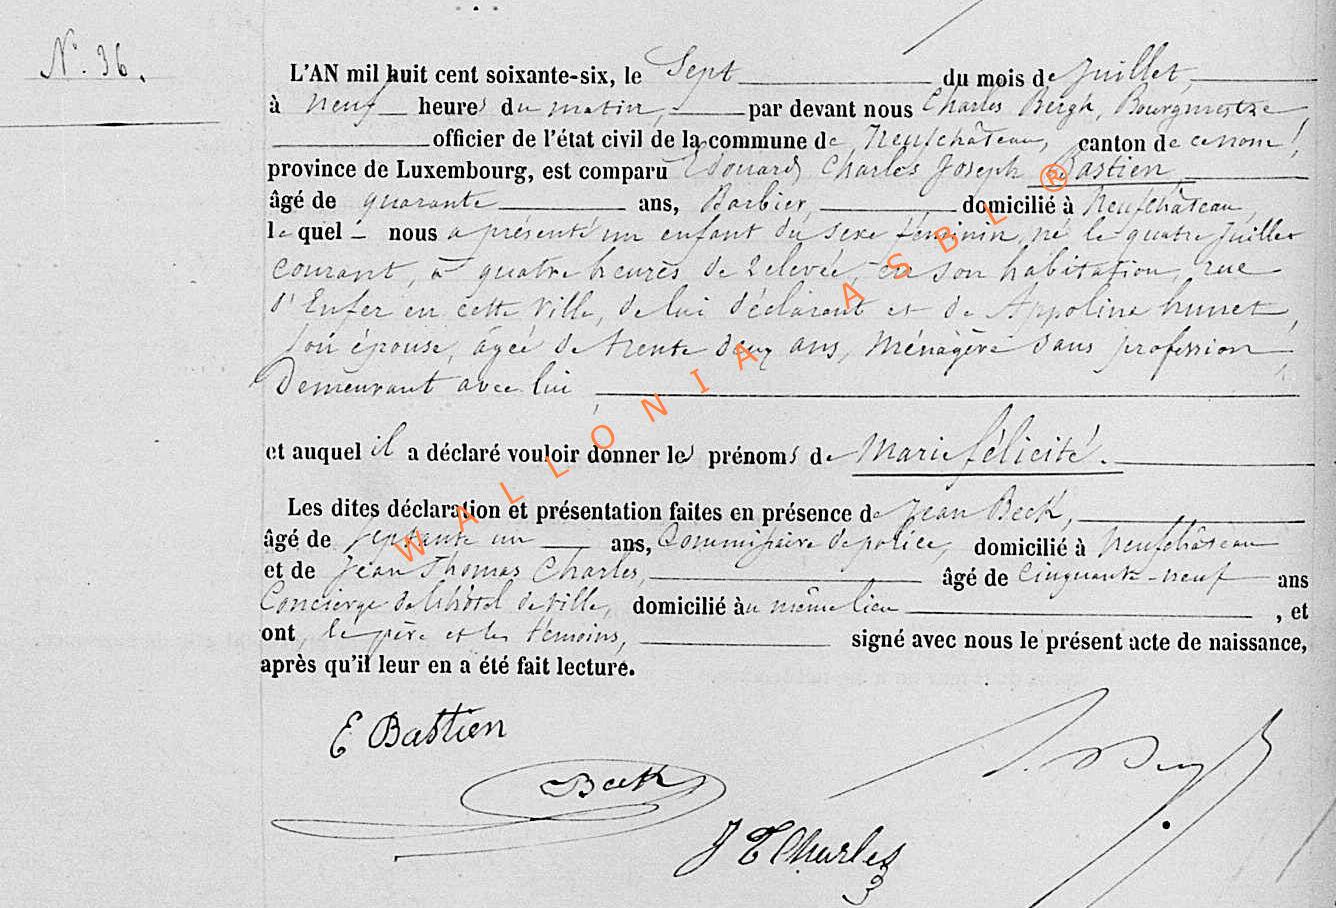 N° 36.
L'AN mil huit cent soixante-six, le Sept du mois de Juillet,
à neuf heures du matin, par devant nous Charles Bergh, Bourgmestre,
officier de l'état civil de la commune de Neufchâteau, canton de ce nom,
province de Luxembourg, est comparu Edouard Charles Joseph Bastien,
âgé de quarante ans, Barbier, domicilié à Neufchâteau,
lequel nous a présenté un enfant du sexe féminin, né le quatre Juillet
courant, à quatre heures de relevée, en son habitation, rue
d'Enfer en cette ville, de lui déclarant et de Appoline hunet,
son épouse, agée de trente deux ans, Ménagère sans profession,
Demeurant avec lui
et auquel il a déclaré vouloir donner les prénoms de Marie félicité.
Les dites déclaration et présentation faites en présence de Jean Beck,
âgé de septante un ans, Commissaire de police, domicilié à Neufchâteau
et de Jean Thomas Charles, âgé de Cinquante-neuf ans
Concierge de l'hôtel de ville, domicilié au même lieu, et
ont, le père et les témoins, signé avec nous le présent acte de naissance,
après qu'il leur en a été fait lecture.
E Bastien
Beck
J T Charles
WALLONIA ASBL ®